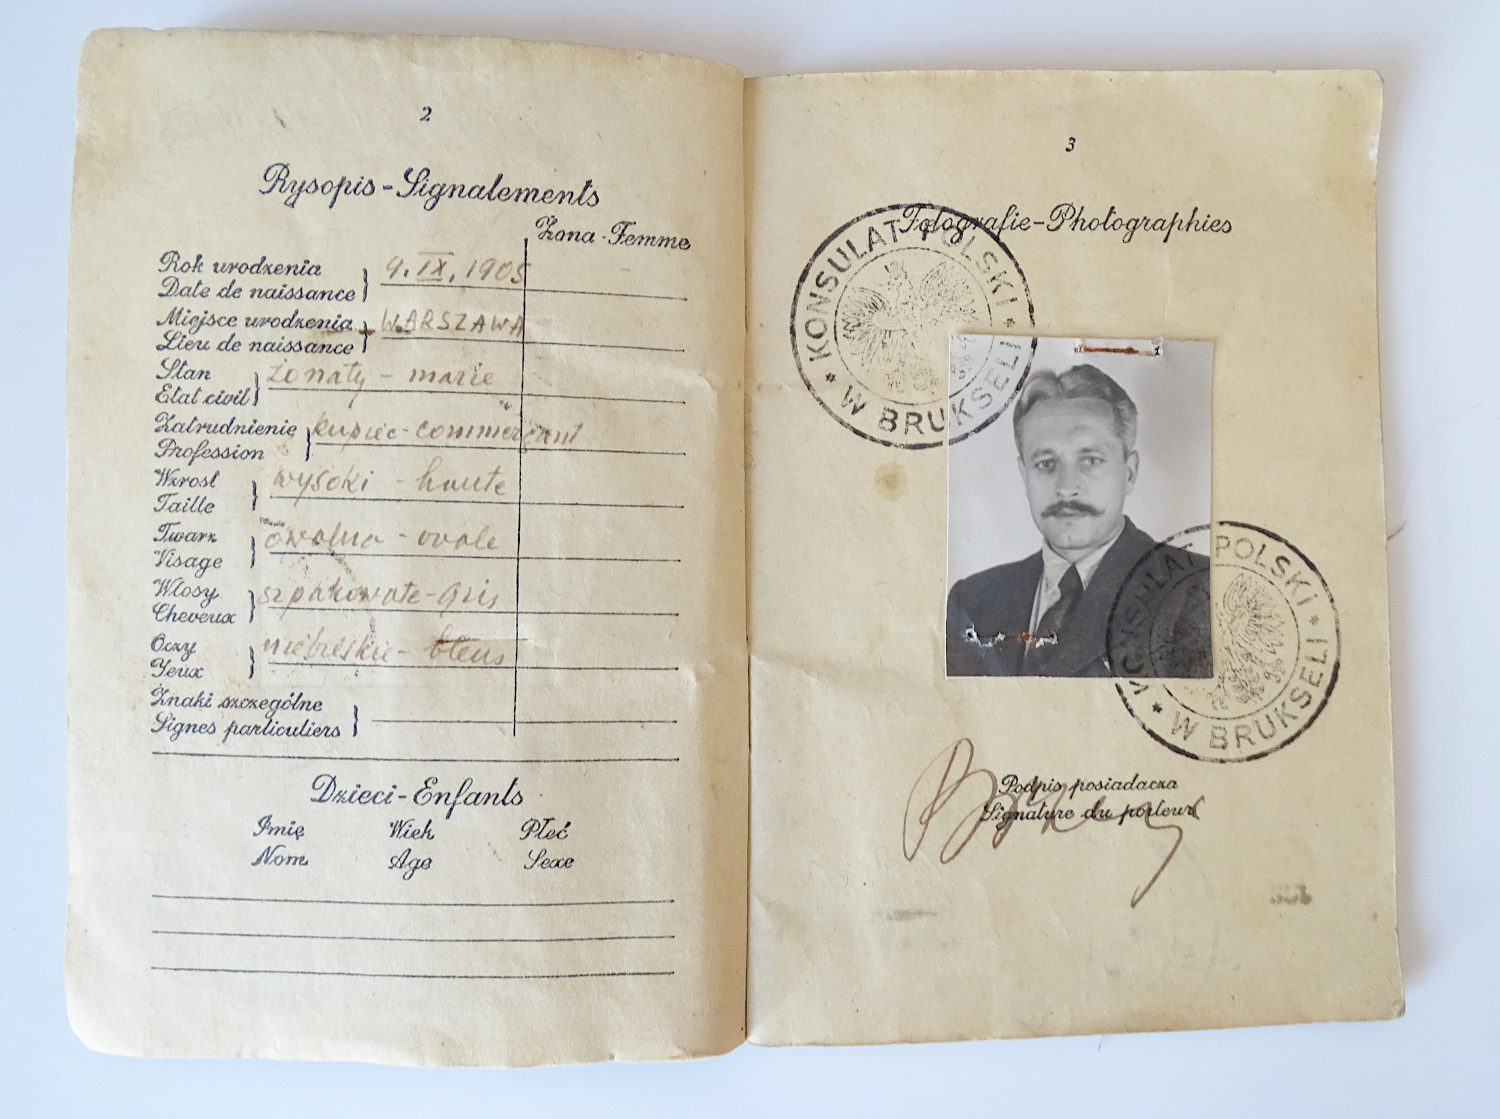 2
Rysopis-Signalements
Żona-Femme
Rok urodzenia
Date de naissance
9.IX.1905
Miejsce urodzenia
Lieu de naissance
WARSZAWA
Stan
Etat civil
żonaty - marie
Zatrudnienie
Profession
kupiec-commerçant
Wzrost
Taille
wysoki - haute
Twarz
Visage
owalna - ovale
Włosy
Cheveux
szpakowate-gris
Oczy
Yeux
niebieskie - bleus
Znaki szczególne
Signes particuliers
Dzieci-Enfants
Imię Wiek Płeć
Nom Age Sexe
3
Fotografie-Photographies
KONSULAT POLSKI
* W BRUKSELI *
KONSULAT POLSKI
* W BRUKSELI *
Podpis posiadacza
Signature du porteur